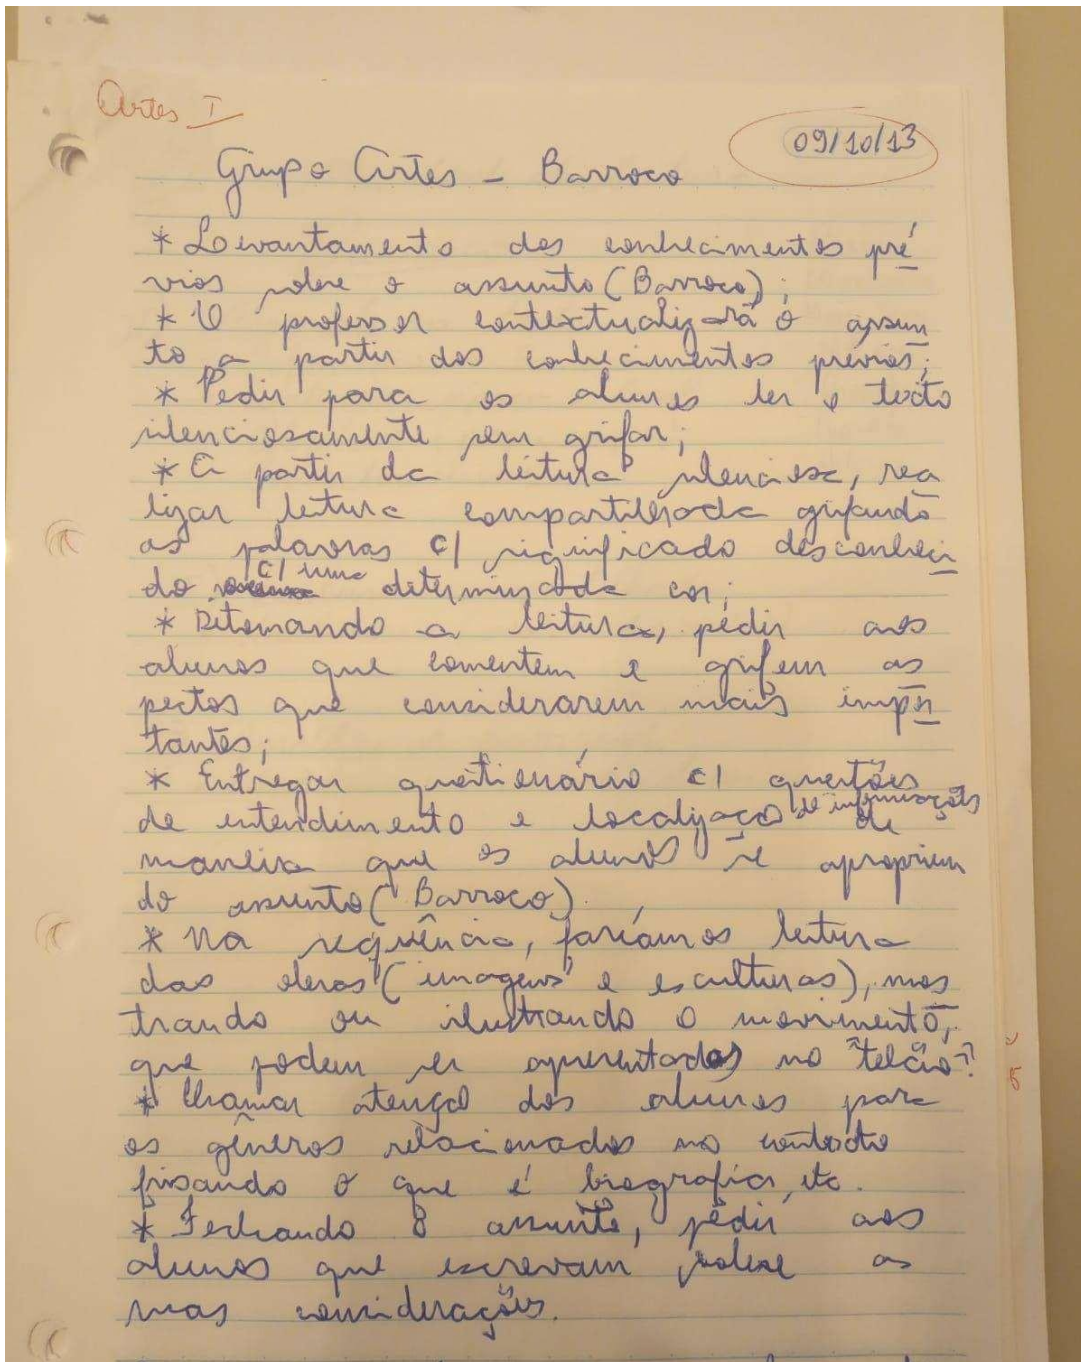 Artes I
09/10/13
Grupo Artes - Barroco
* Levantamento dos conhecimentos pré
vios sobre o assunto (Barroco);
* O professor contextualizará o assun
to a partir dos conhecimentos prévios;
* Pedir para os alunos ler o texto
silenciosamente sem grifar;
* A partir da leitura silenciosa, rea
lizar leitura compartilhada grifando
as palavras c/ significado desconheci
do c/ uma determinada cor;
* Retomando a leitura, pedir aos
alunos que comentem e grifem as
pectos que considerarem mais impor
tantes;
* Entregar questionário c/ questões
de entendimento e localização de informações de
maneira que os alunos se apropriem
do assunto (Barroco).
* Na sequência, faríamos leitura
das obras (imagens e esculturas), mos
trando ou ilustrando o movimento,
que podem ser apresentados no "telão".
* Chamar atenção dos alunos para
os gêneros relacionados no contexto
frisando o que é biografia, etc.
* Fechando o assunto, pedir aos
alunos que escrevam sobre as
suas considerações.